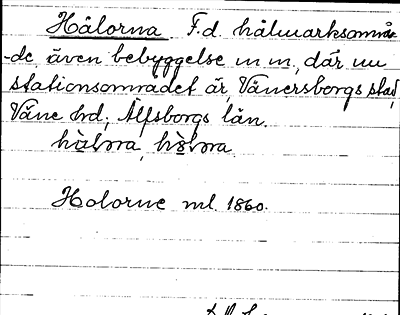 Hålorna. F.d. hålmarksområ-
-de även bebyggelse m m, där nu
stationsområdet är, Vänersborgs stad,
Väne hrd, Älfsborgs län.
hòlωra, hòlωra
Holorne ml. 1860.